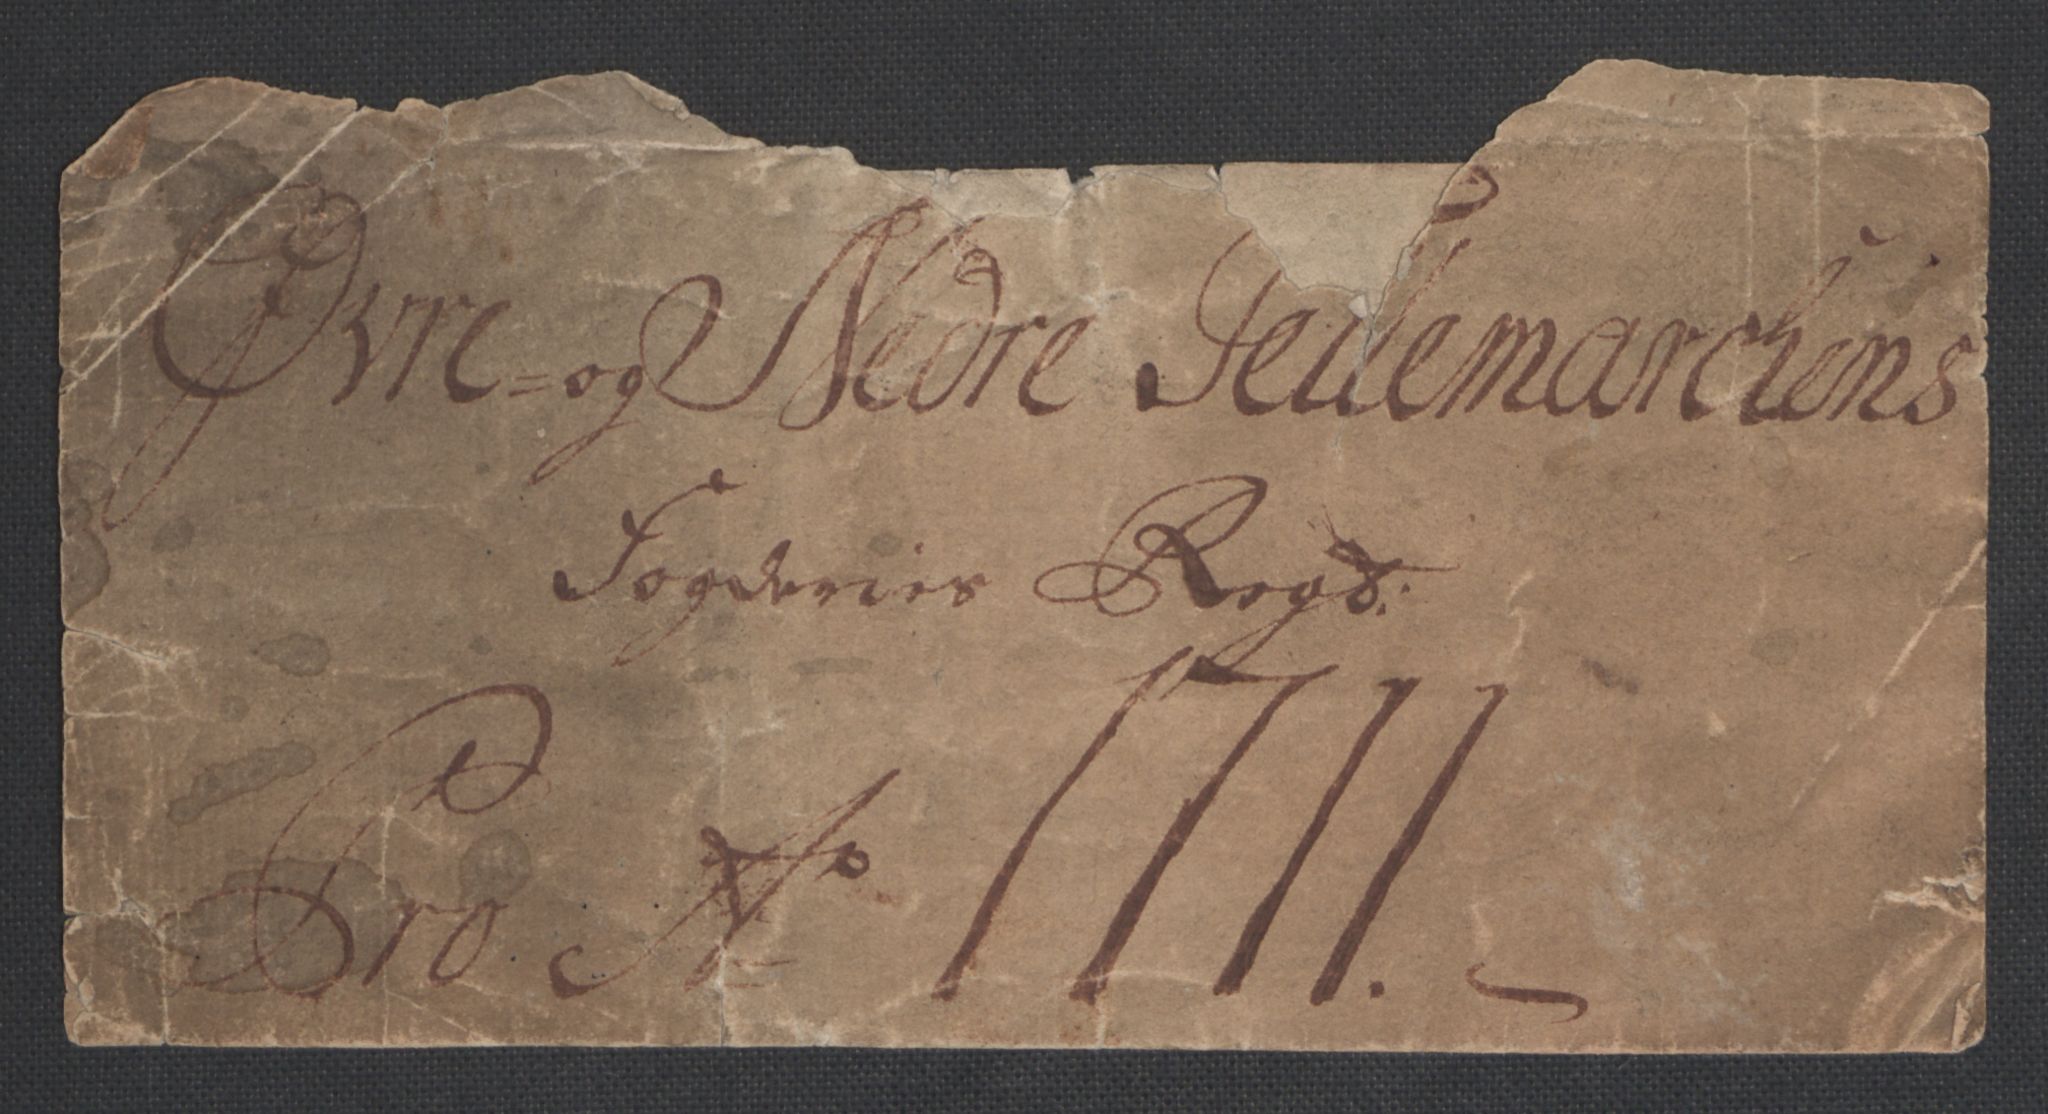 Øvre= og Nedre Tellemarchens
Fogderies Regsk:
Pro Ao 1711.